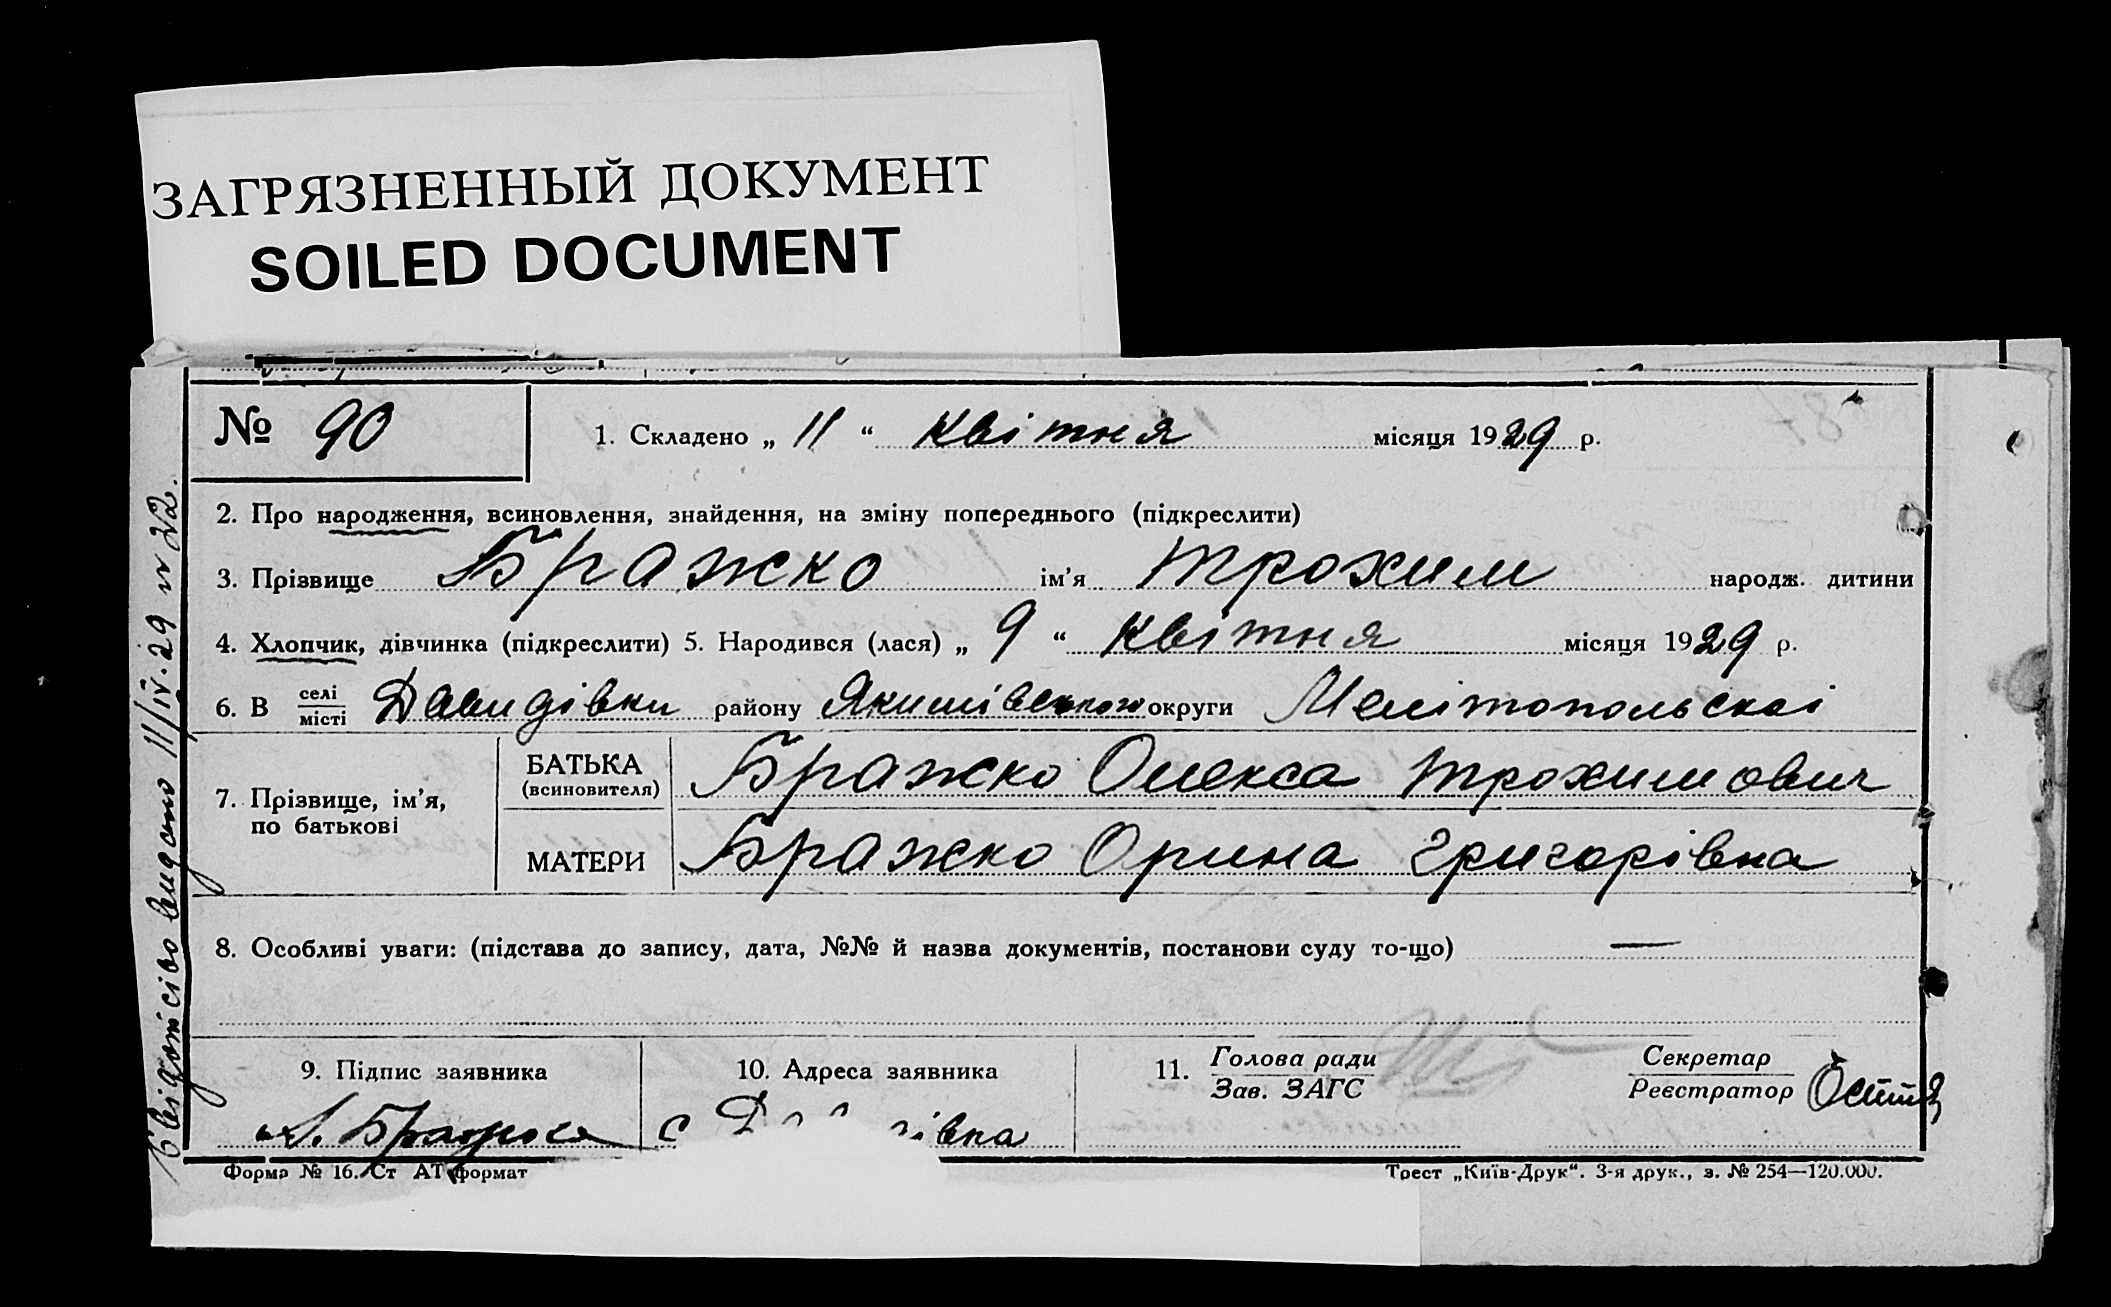 ЗАГРЯЗНЕННЫЙ ДОКУМЕНТ
SOILED DOCUMENT
№ 90
1. Складено „ 11 “ квітня місяця 1929 р.
2. Про народження, всиновлення, знайдення, на зміну попереднього (підкреслити)
3. Прізвище Бражко ім’я Трохим народж. дитини
4. Хлопчик, дівчинка (підкреслити) 5. Народився (лася) „ 9 “ квітня місяця 1929 р.
6. В селі місті Давидівки району Якимівського округи Мелітопольскоі
7. Прізвище, ім’я, по батькові
БАТЬКА (всиновителя) Бражко Олекса Трохимович
МАТЕРИ Бражко Орина Григорівна
8. Особливі уваги: (підстава до запису, дата, №№ й назва документів, постанови суду то-що) —
9. Підпис заявника
10. Адреса заявника
11. Голова ради Зав. ЗАГС
Секретар Реєстратор
с
Форма № 16. Ст АТ формат
Трест „Київ-Друк“. 3-я друк., з. № 254—120.000.
Свідотсіво видано 11/IV.29 № 22.